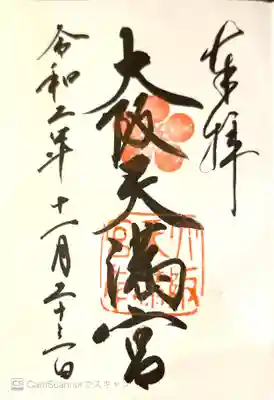 奉拝
大阪天満宮
令和二年十一月二十三日
CamScannerでスキャン